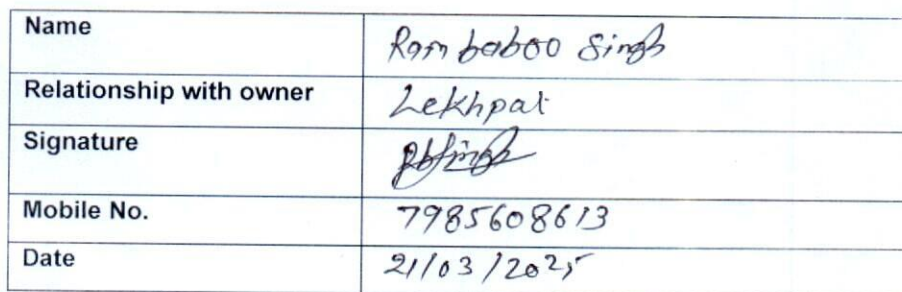 Name Rambaboo Singh
Relationship with owner Lekhpal
Signature RbSingh
Mobile No. 7985608613
Date 21/03/2025